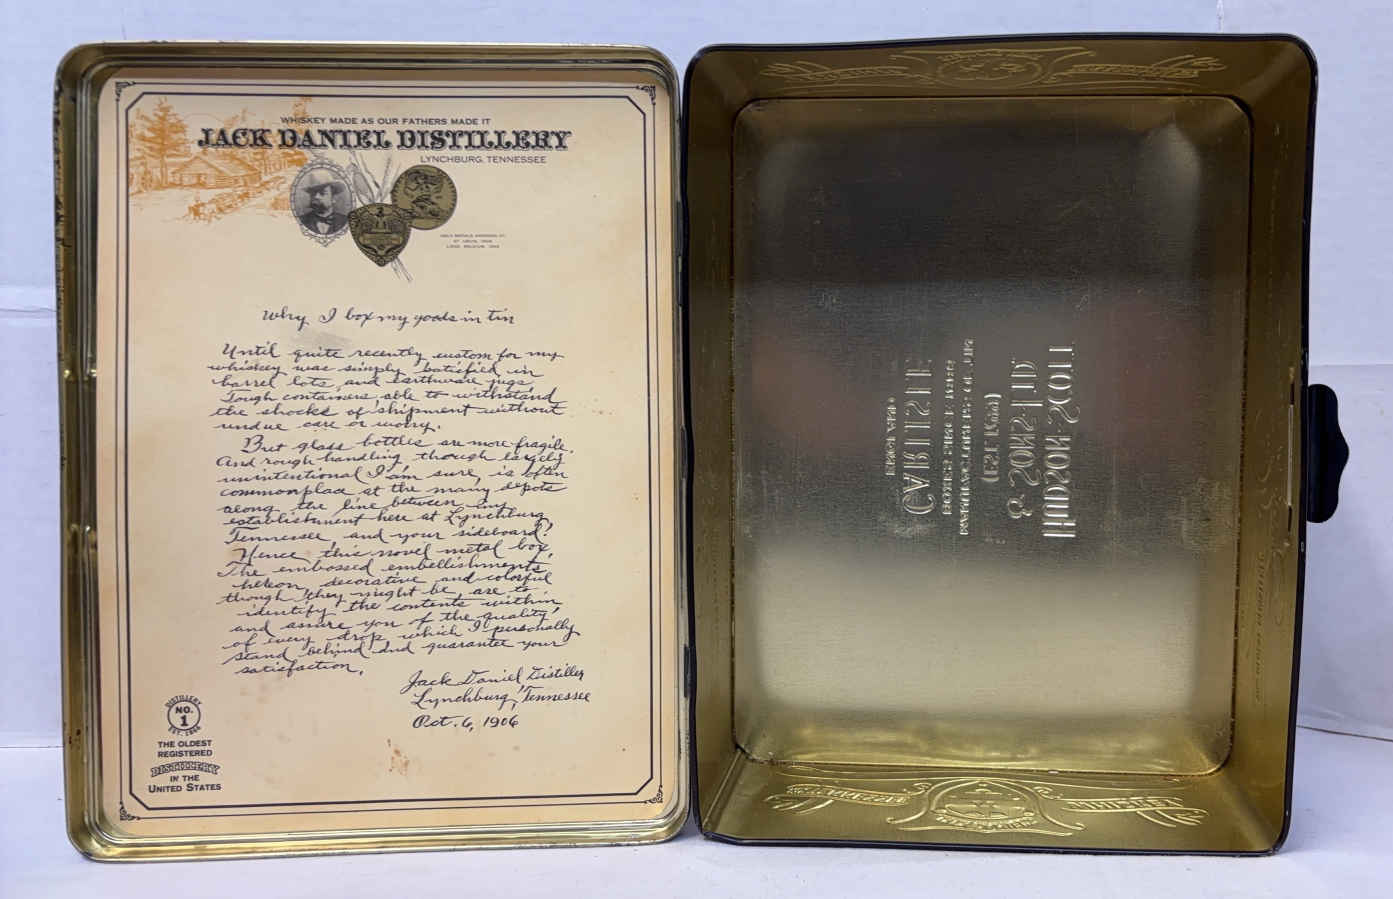 WHISKEY MADE AS OUR FATHERS MADE IT
JACK DANIEL DISTILLERY
LYNCHBURG, TENNESSEE
GOLD MEDALS AWARDED AT
ST. LOUIS, 1904
LIEGE, BELGIUM, 1905
Why I box my goods in tin
Until quite recently custom for my
whiskey was simply satisfied in
barrel lots, and earthware jugs.
Tough containers able to withstand
the shocks of shipment without
undue care or worry.
But glass bottles are more fragile.
And rough handling though largely
unintentional I am sure, is often
commonplace at the many depots
along the line between my
establishment here at Lynchburg,
Tennessee, and your sideboard!
Hence this novel metal box.
The embossed embellishments
hereon decorative and colorful
though they might be, are to
identify the contents within
and assure you of the quality
of every drop which I personally
stand behind and guarantee your
satisfaction.
Jack Daniel, Distiller
Lynchburg, Tennessee
Oct. 6, 1906
DISTILLERY
NO.
1
EST. 1866
THE OLDEST
REGISTERED
DISTILLERY
IN THE
UNITED STATES
HUDSON SCOTT
& SONS LTD
(EST 1799)
MANUFACTURERS OF TIN
CARLISLE
ENGLAND
TENNESSEE
WHISKEY